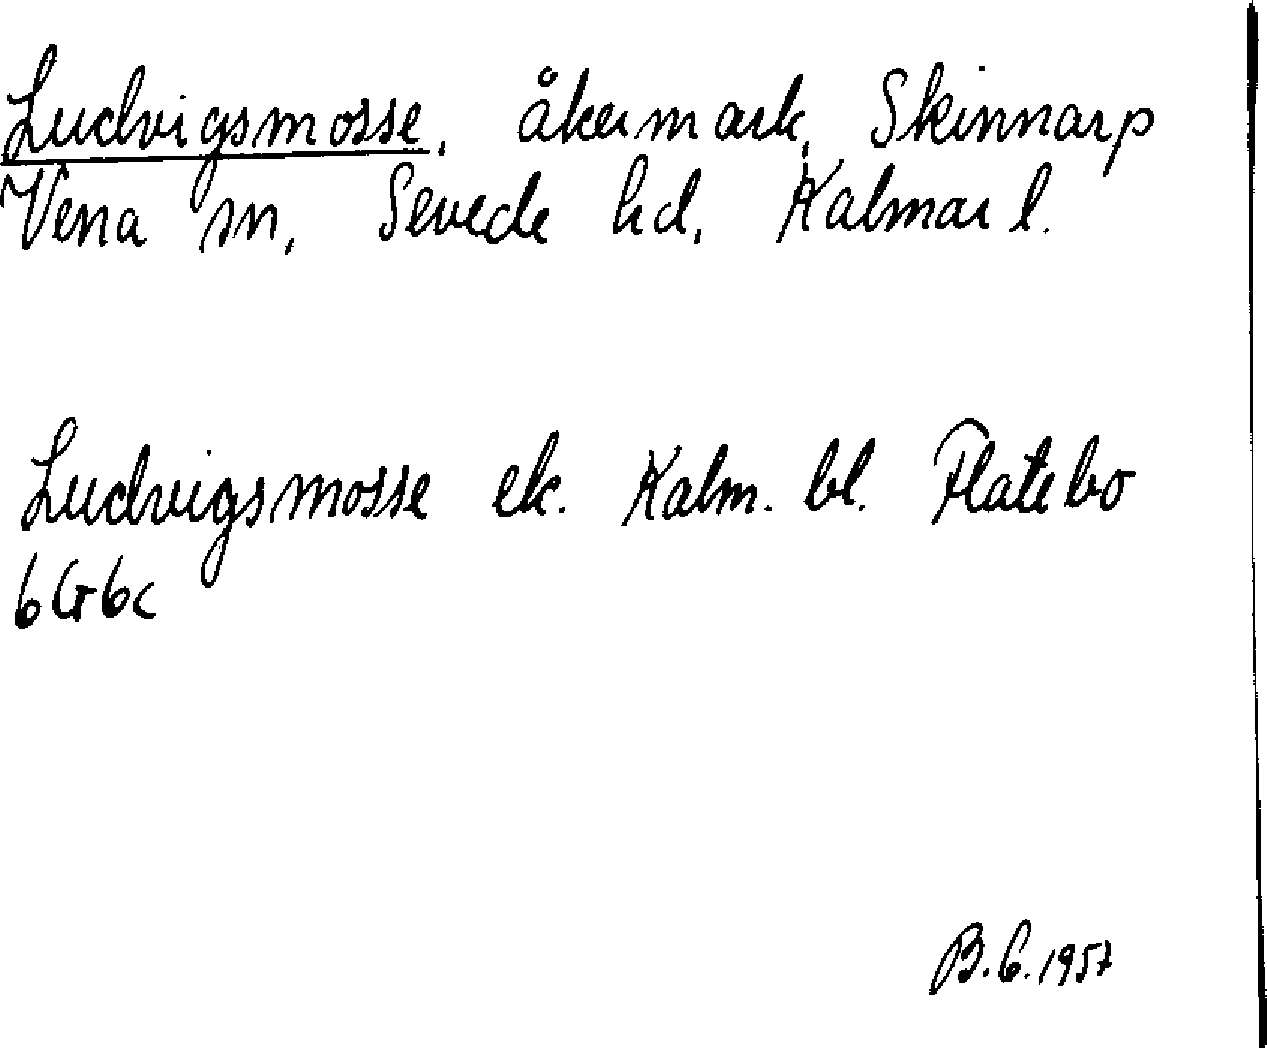 Ludvigsmosse, åkermark, Skinnarp
Vena sn, Sevede hd, Kalmar l.
Ludvigsmosse ek. Kalm. bl. Flatebo
6G6c
B.G.1957